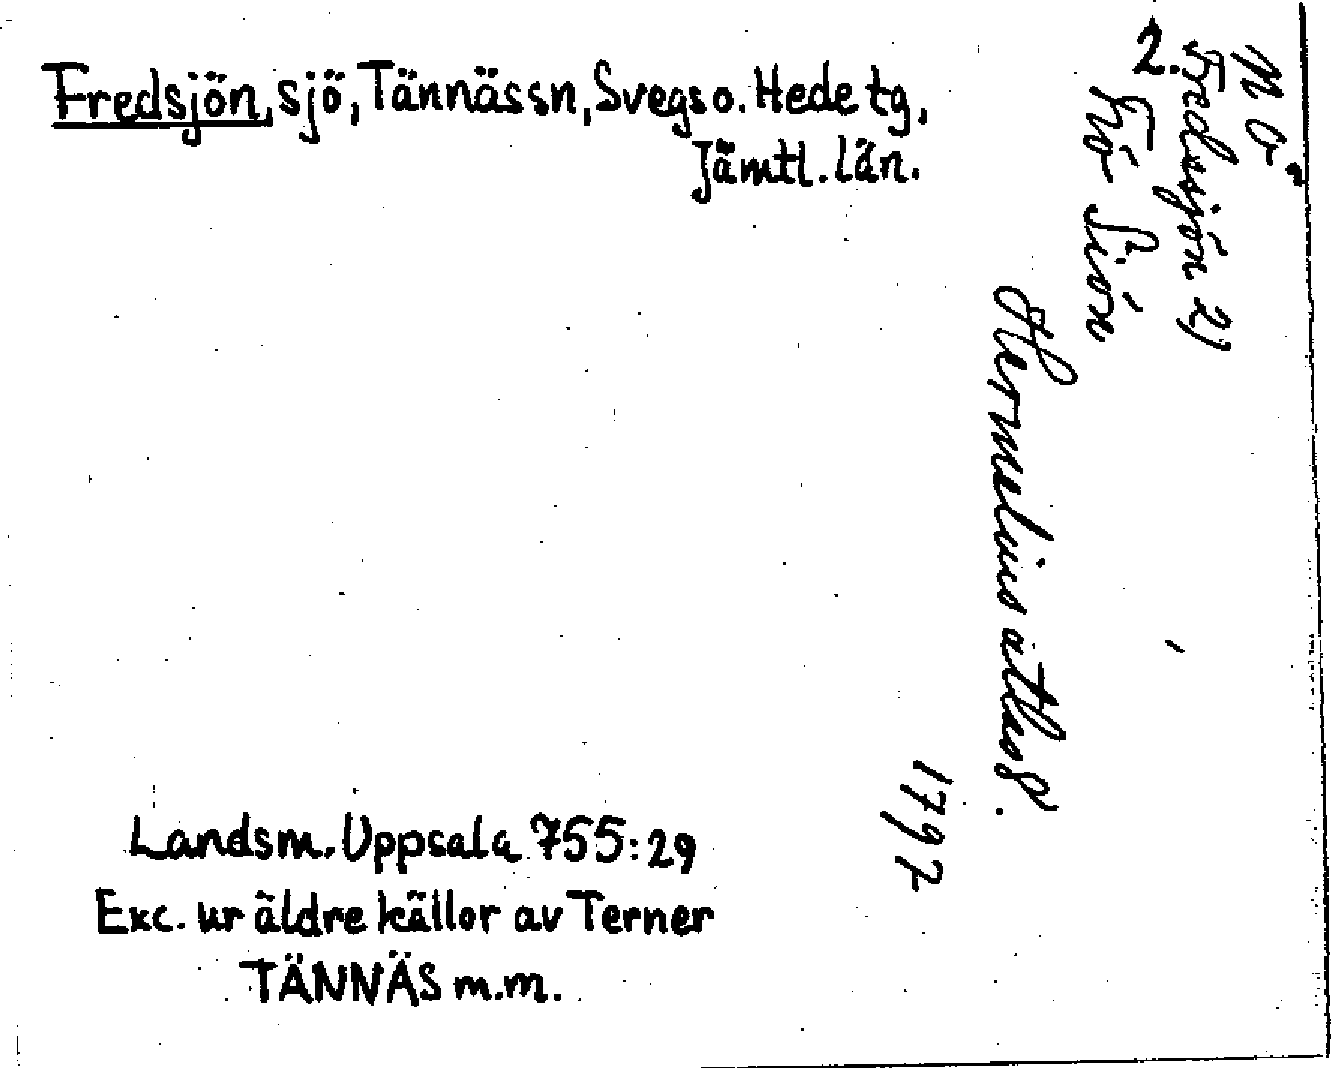 Fredsjön, sjö, Tännässn, Svegs o. Hede tg,
Jämtl. län.
N O.
Fredsjön 2)
2. Frö Siön
Hermelins atlas.
1797
Landsm. Uppsala 755:29
Exc. ur äldre källor av Terner
TÄNNÄS m.m.